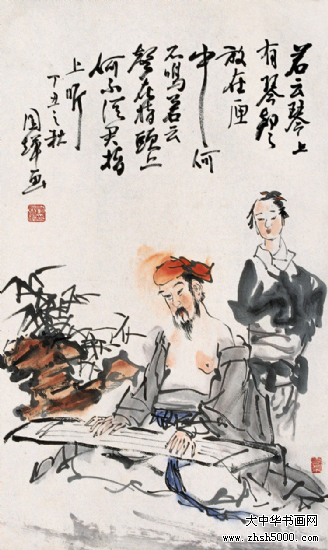 若云琴上
有琴声
放在匣
中何
不鸣若云
声在指头上
何不 君指
上听
丁丑之秋
画
大中华书画网
www.zhsh5000.com